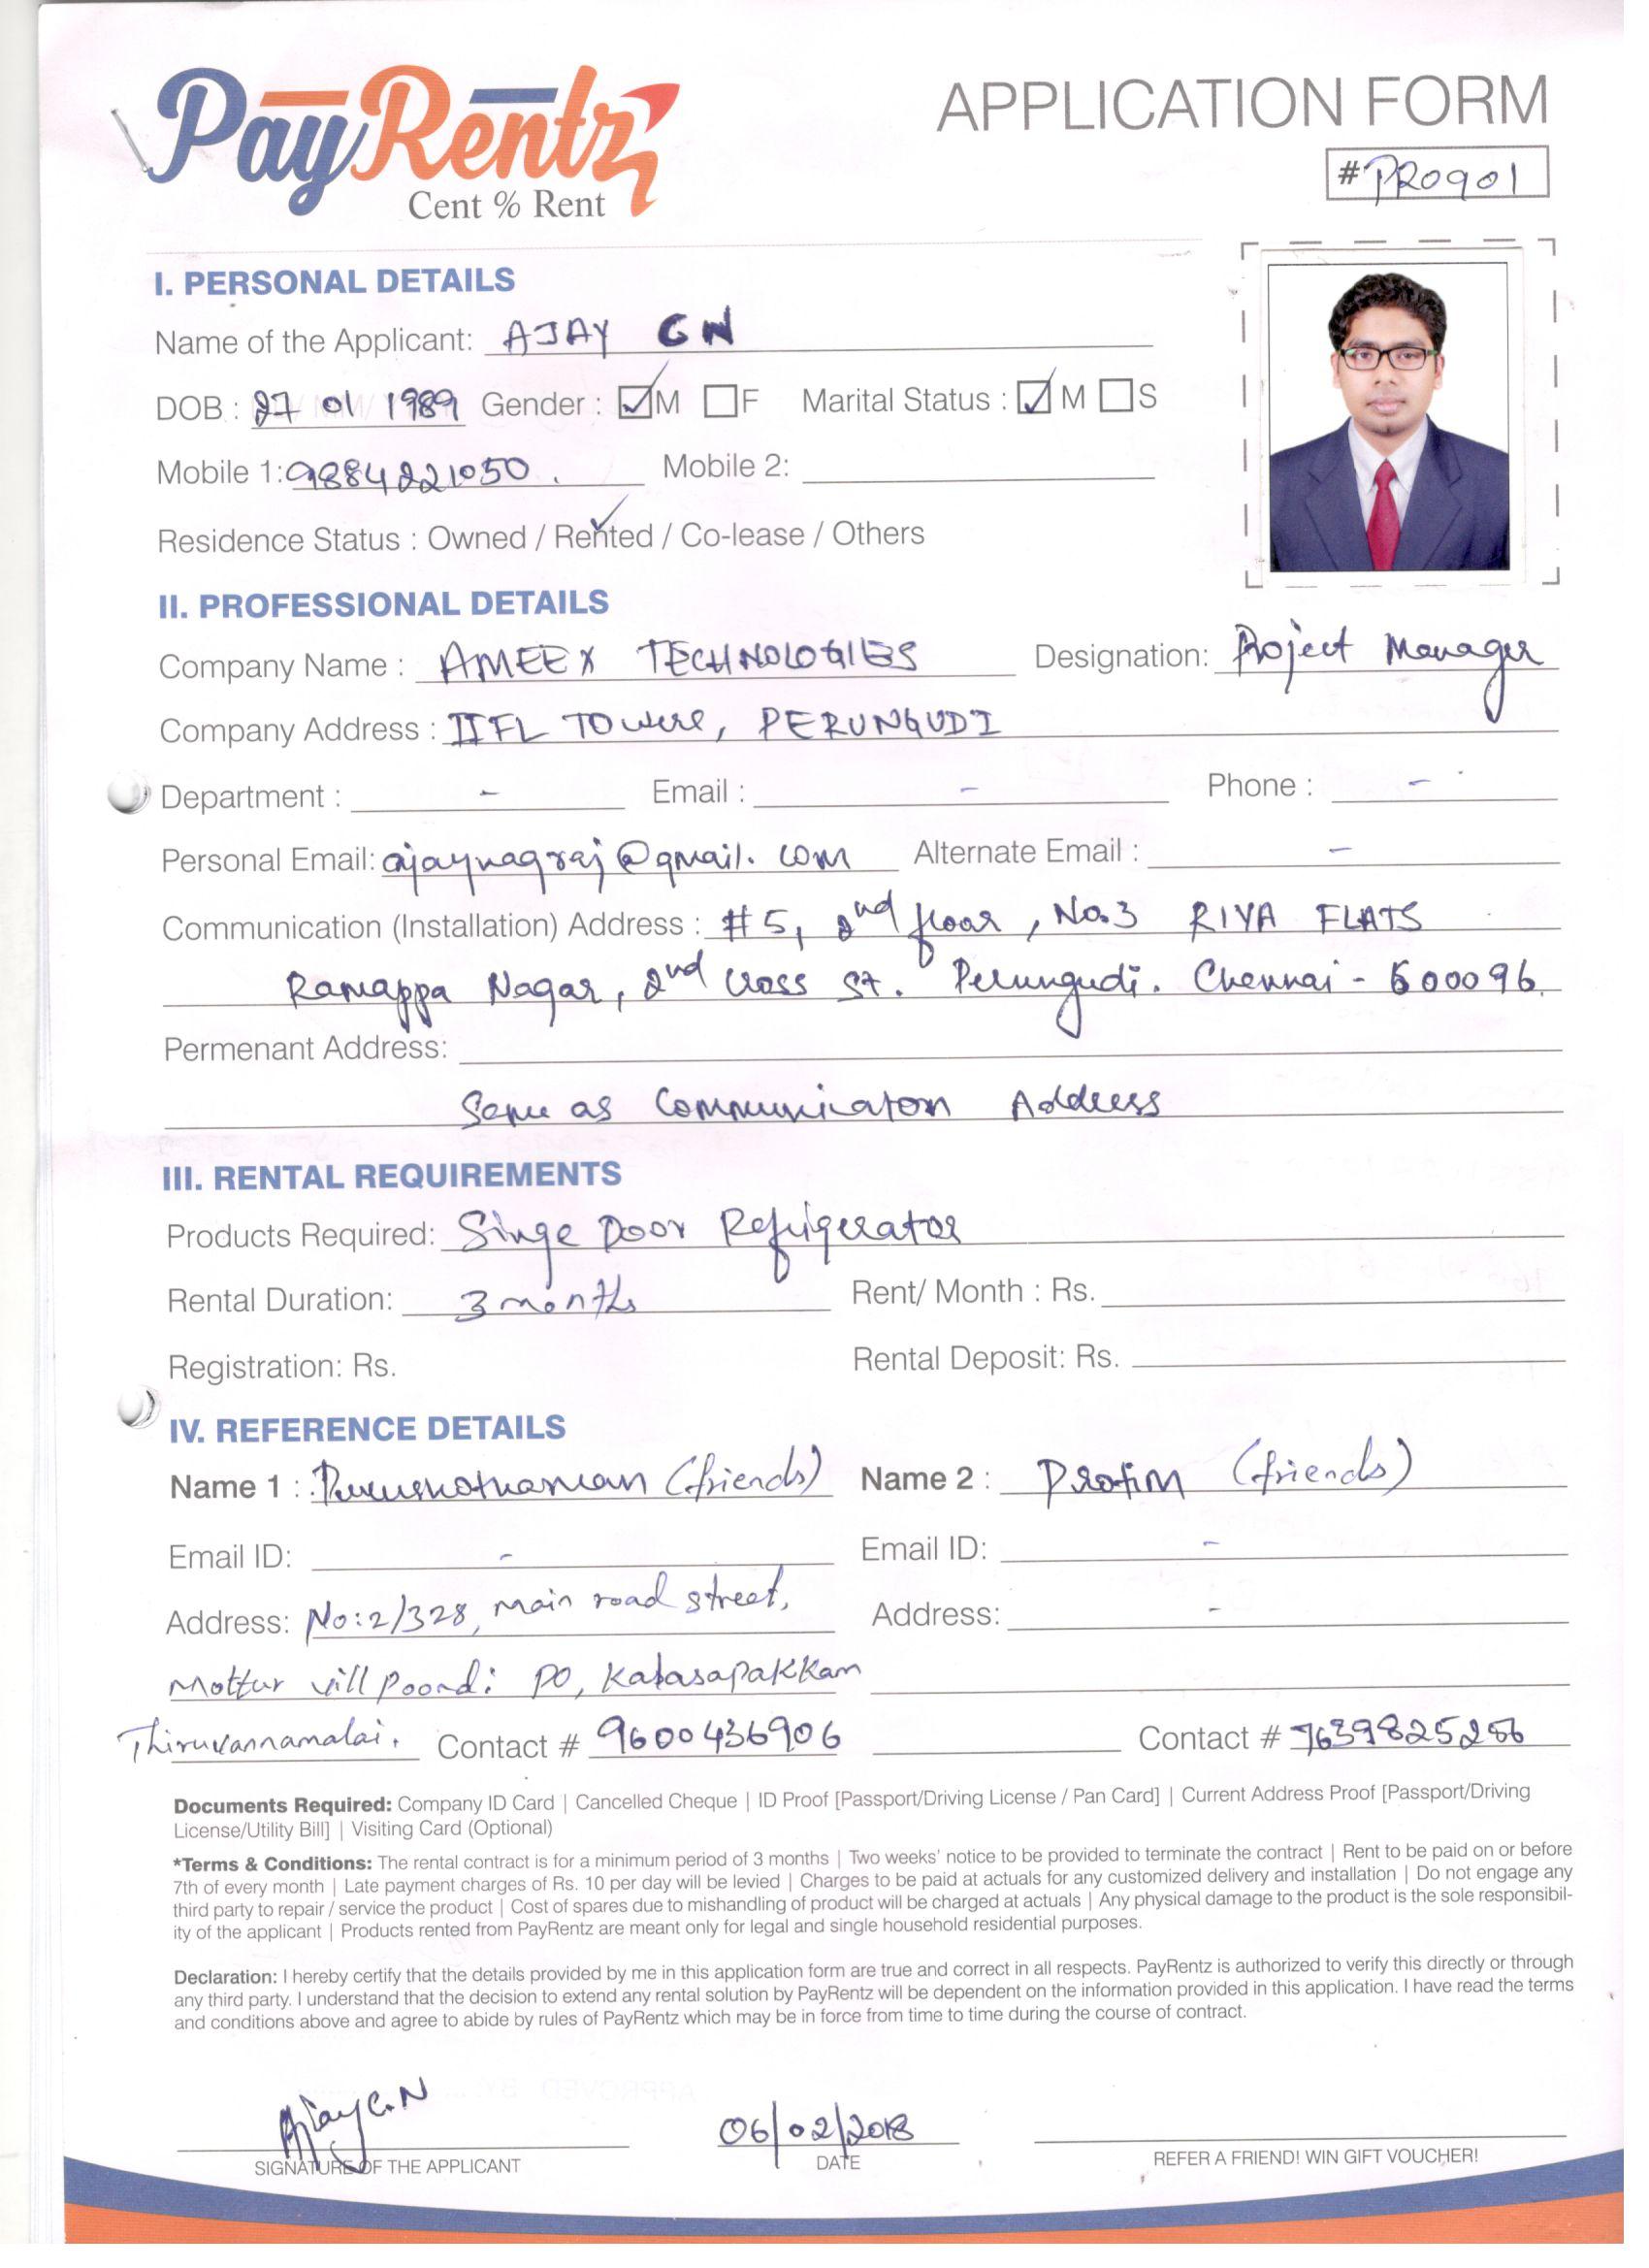 PayRentz
Cent % Rent
APPLICATION FORM
#PR0901
I. PERSONAL DETAILS
Name of the Applicant: AJAY G N
DOB : 27 01 1989 Gender : ☑M ☐F Marital Status : ☑M ☐S
Mobile 1: 9884221050. Mobile 2:
Residence Status : Owned / Rented / Co-lease / Others
II. PROFESSIONAL DETAILS
Company Name : AMEEX TECHNOLOGIES Designation: Project Manager
Company Address : IIFL TOwer, PERUNGUDI
Department : - Email : - Phone : -
Personal Email: ajaynagraj@gmail.com Alternate Email : -
Communication (Installation) Address : #5, 2nd floor, No.3 RIYA FLATS
Ramappa Nagar, 2nd Cross St. Perungudi. Chennai - 600096.
Permenant Address:
Same as Communicaton Address
III. RENTAL REQUIREMENTS
Products Required: Singe Door Refrigerator
Rental Duration: 3 months Rent/ Month : Rs.
Registration: Rs. Rental Deposit: Rs.
IV. REFERENCE DETAILS
Name 1 : Purushothaman (friends) Name 2 : (friends)
Email ID: - Email ID: -
Address: No:2/328, main road street, Address: -
Mottur vill Poond: PO, Kalasapakkam
Thiruvannamalai. Contact # 9600436906 Contact #
Documents Required: Company ID Card | Cancelled Cheque | ID Proof [Passport/Driving License / Pan Card] | Current Address Proof [Passport/Driving
License/Utility Bill] | Visiting Card (Optional)
*Terms & Conditions: The rental contract is for a minimum period of 3 months | Two weeks' notice to be provided to terminate the contract | Rent to be paid on or before
7th of every month | Late payment charges of Rs. 10 per day will be levied | Charges to be paid at actuals for any customized delivery and installation | Do not engage any
third party to repair / service the product | Cost of spares due to mishandling of product will be charged at actuals | Any physical damage to the product is the sole responsibil-
ity of the applicant | Products rented from PayRentz are meant only for legal and single household residential purposes.
Declaration: I hereby certify that the details provided by me in this application form are true and correct in all respects. PayRentz is authorized to verify this directly or through
any third party. I understand that the decision to extend any rental solution by PayRentz will be dependent on the information provided in this application. I have read the terms
and conditions above and agree to abide by rules of PayRentz which may be in force from time to time during the course of contract.
Ajay G.N 06/02/2018
SIGNATURE OF THE APPLICANT DATE REFER A FRIEND! WIN GIFT VOUCHER!